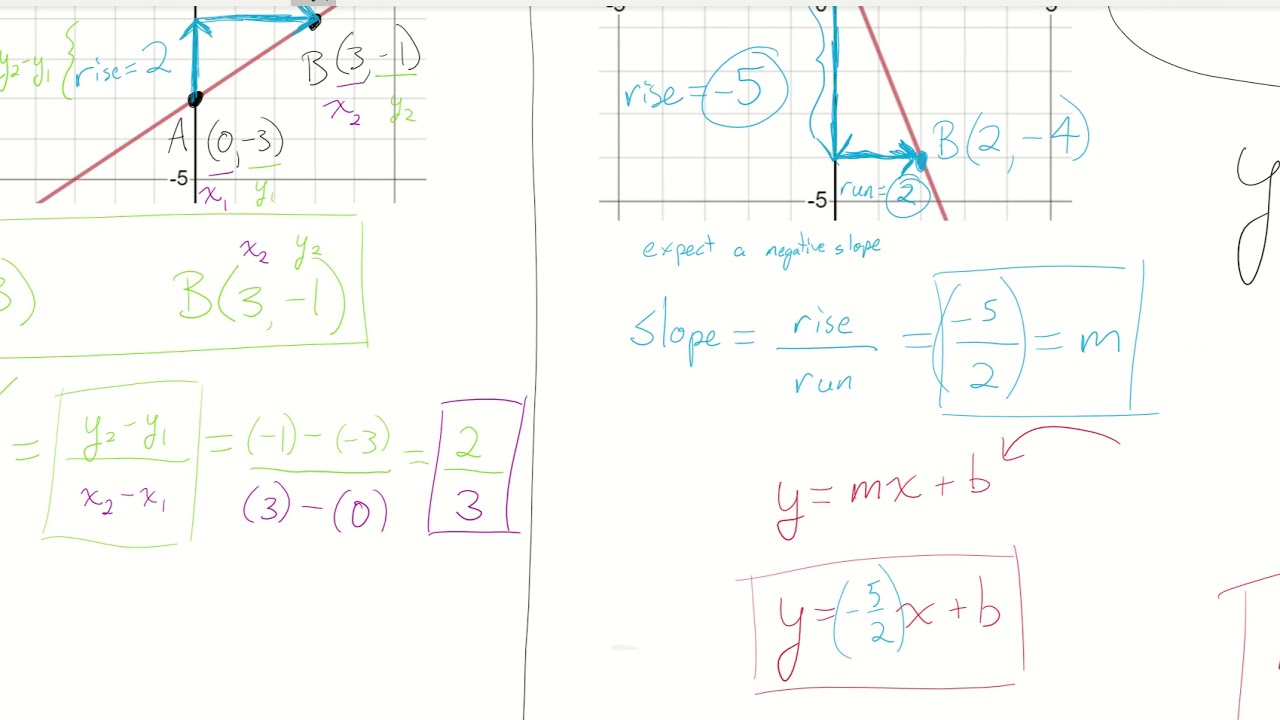 y₂-y₁ { rise = 2
B(3, -1)
x₂ y₂
A (0, -3)
x₁ y₁
-5
x₂ y₂
) B(3, -1)
= y₂ - y₁ / x₂ - x₁ = (-1) - (-3) / (3) - (0) = 2/3
rise = -5
B(2, -4)
run = 2
-5
expect a negative slope
slope = rise / run = (-5/2) = m
y = mx + b
y = (-5/2)x + b
y